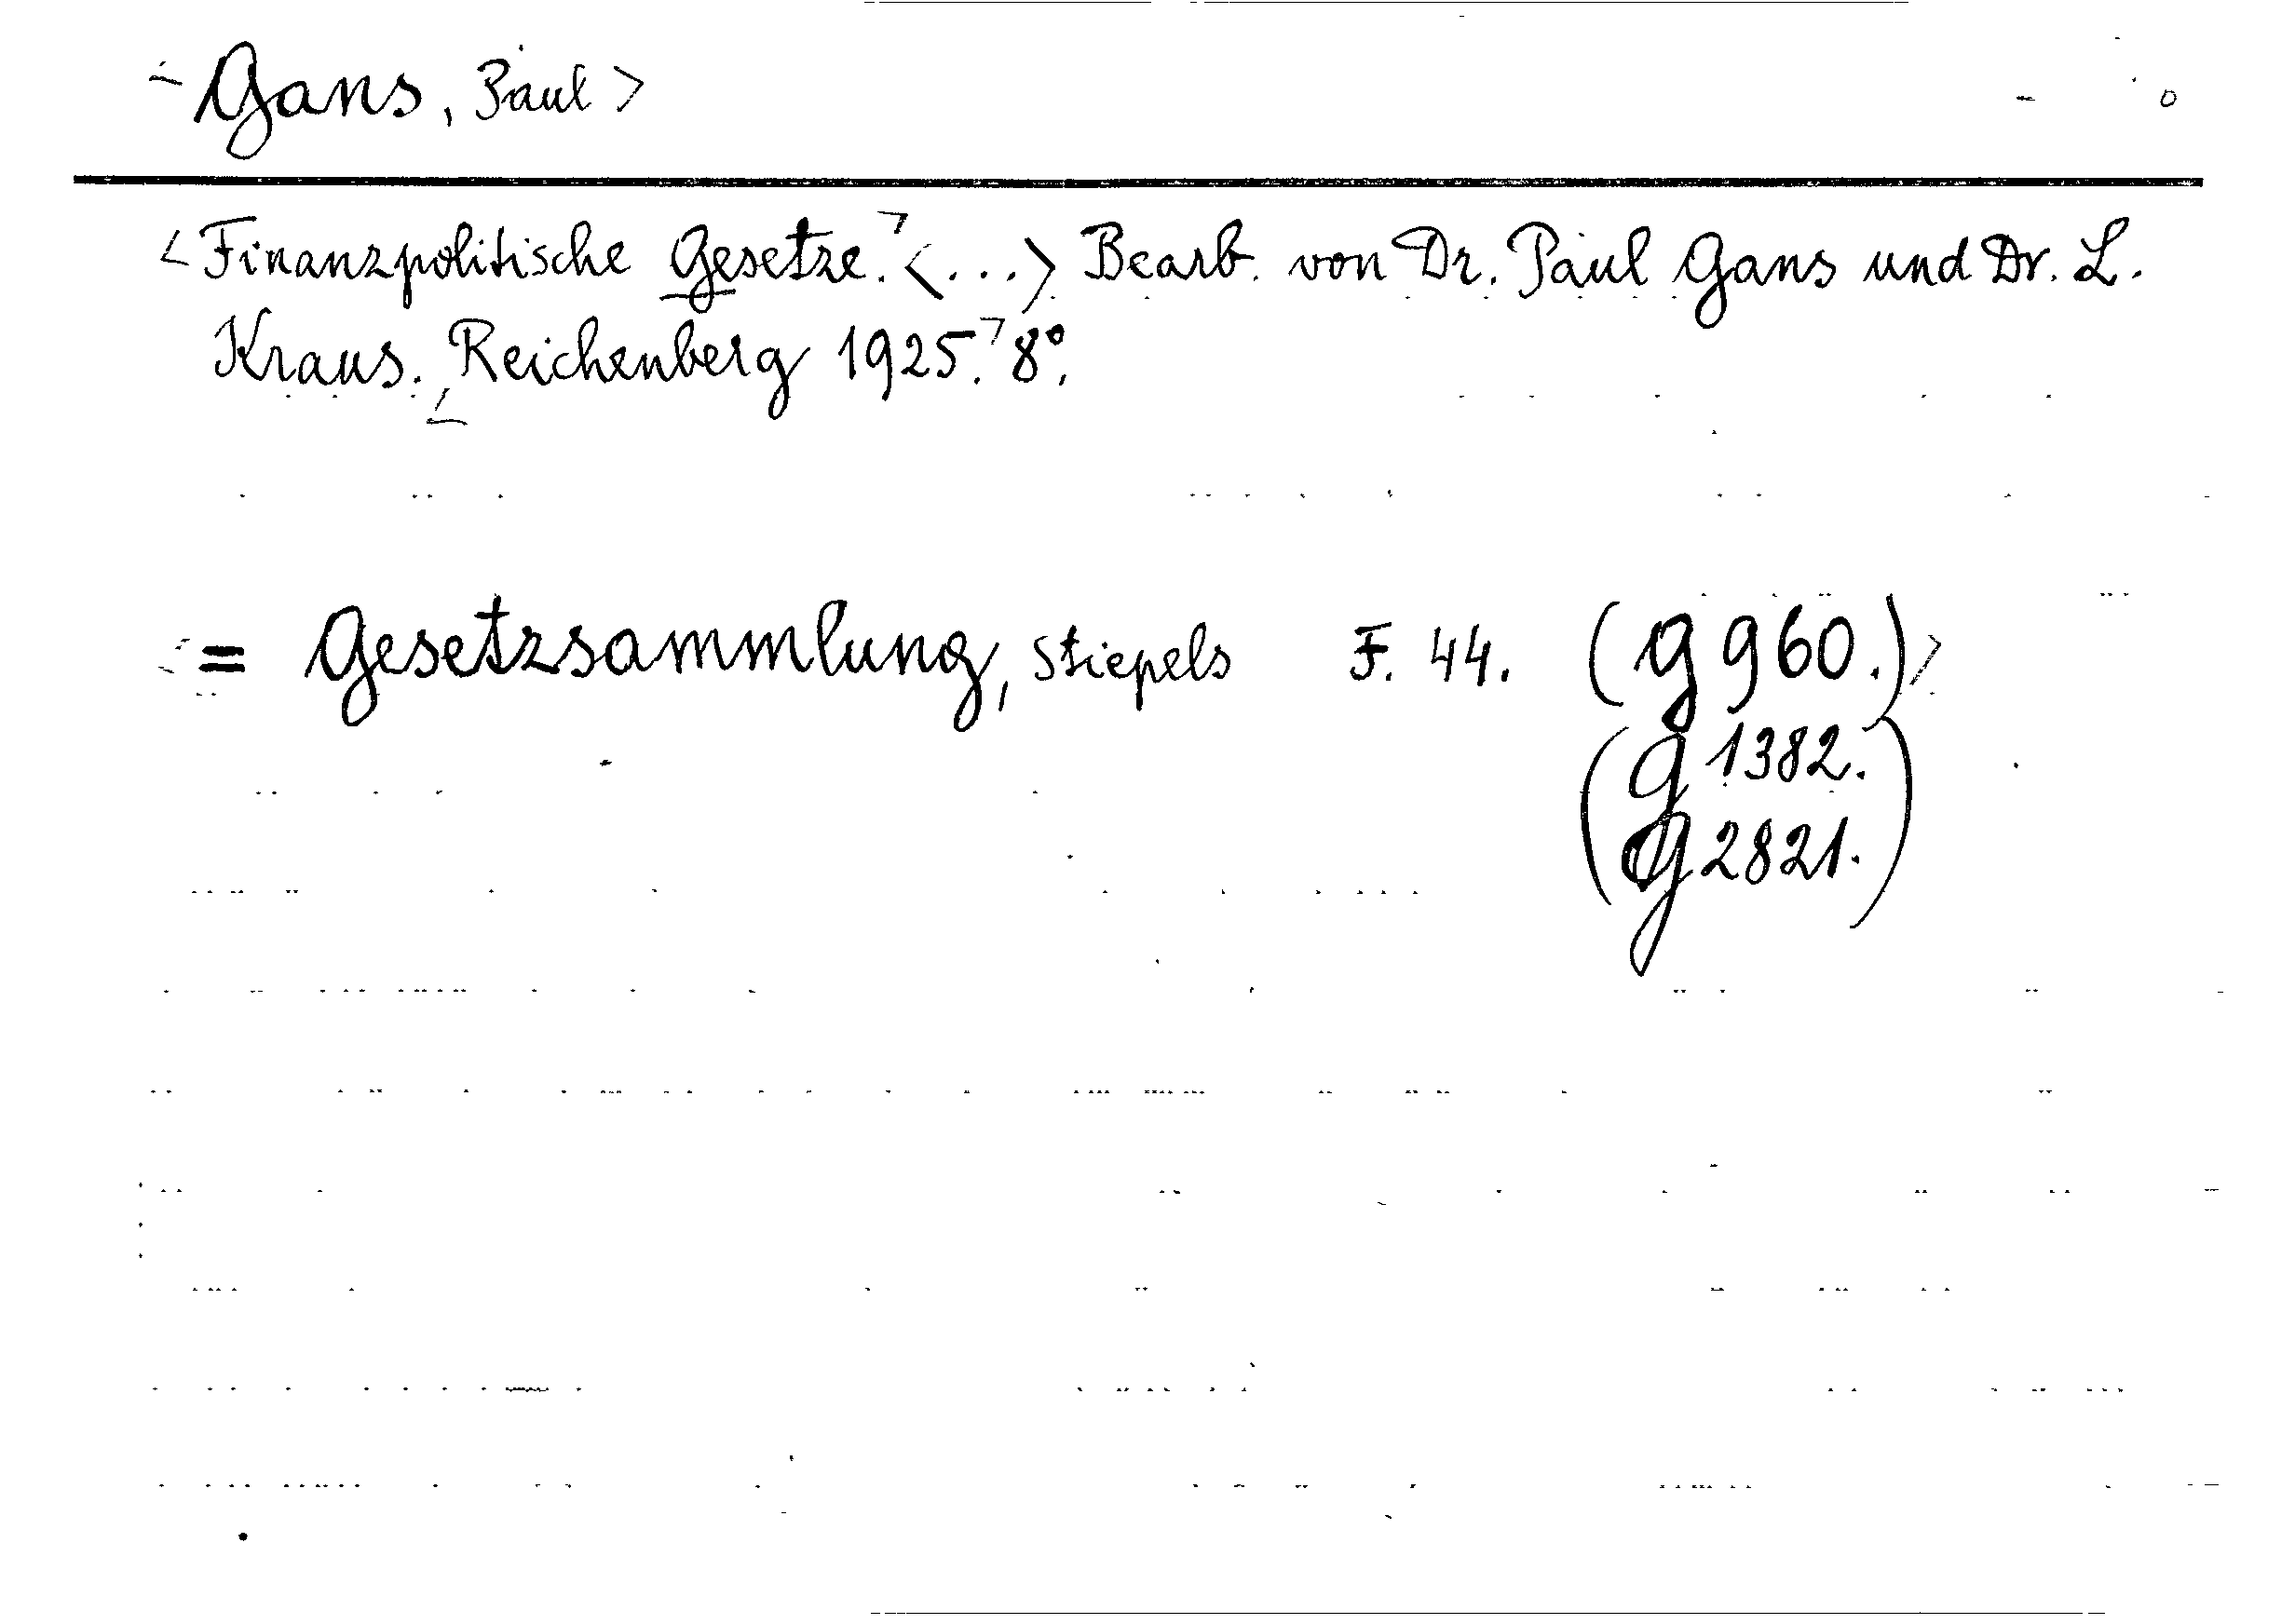 <Gans, Paul>
<Finanzpolitische Gesetze.> <...> Bearb. von Dr. Paul Gans und Dr. L.
Kraus. <Reichenberg 1925.> 8°.
<= Gesetzsammlung, Stiepels F. 44. (G 960.)>
(G 1382.
G 2821.)